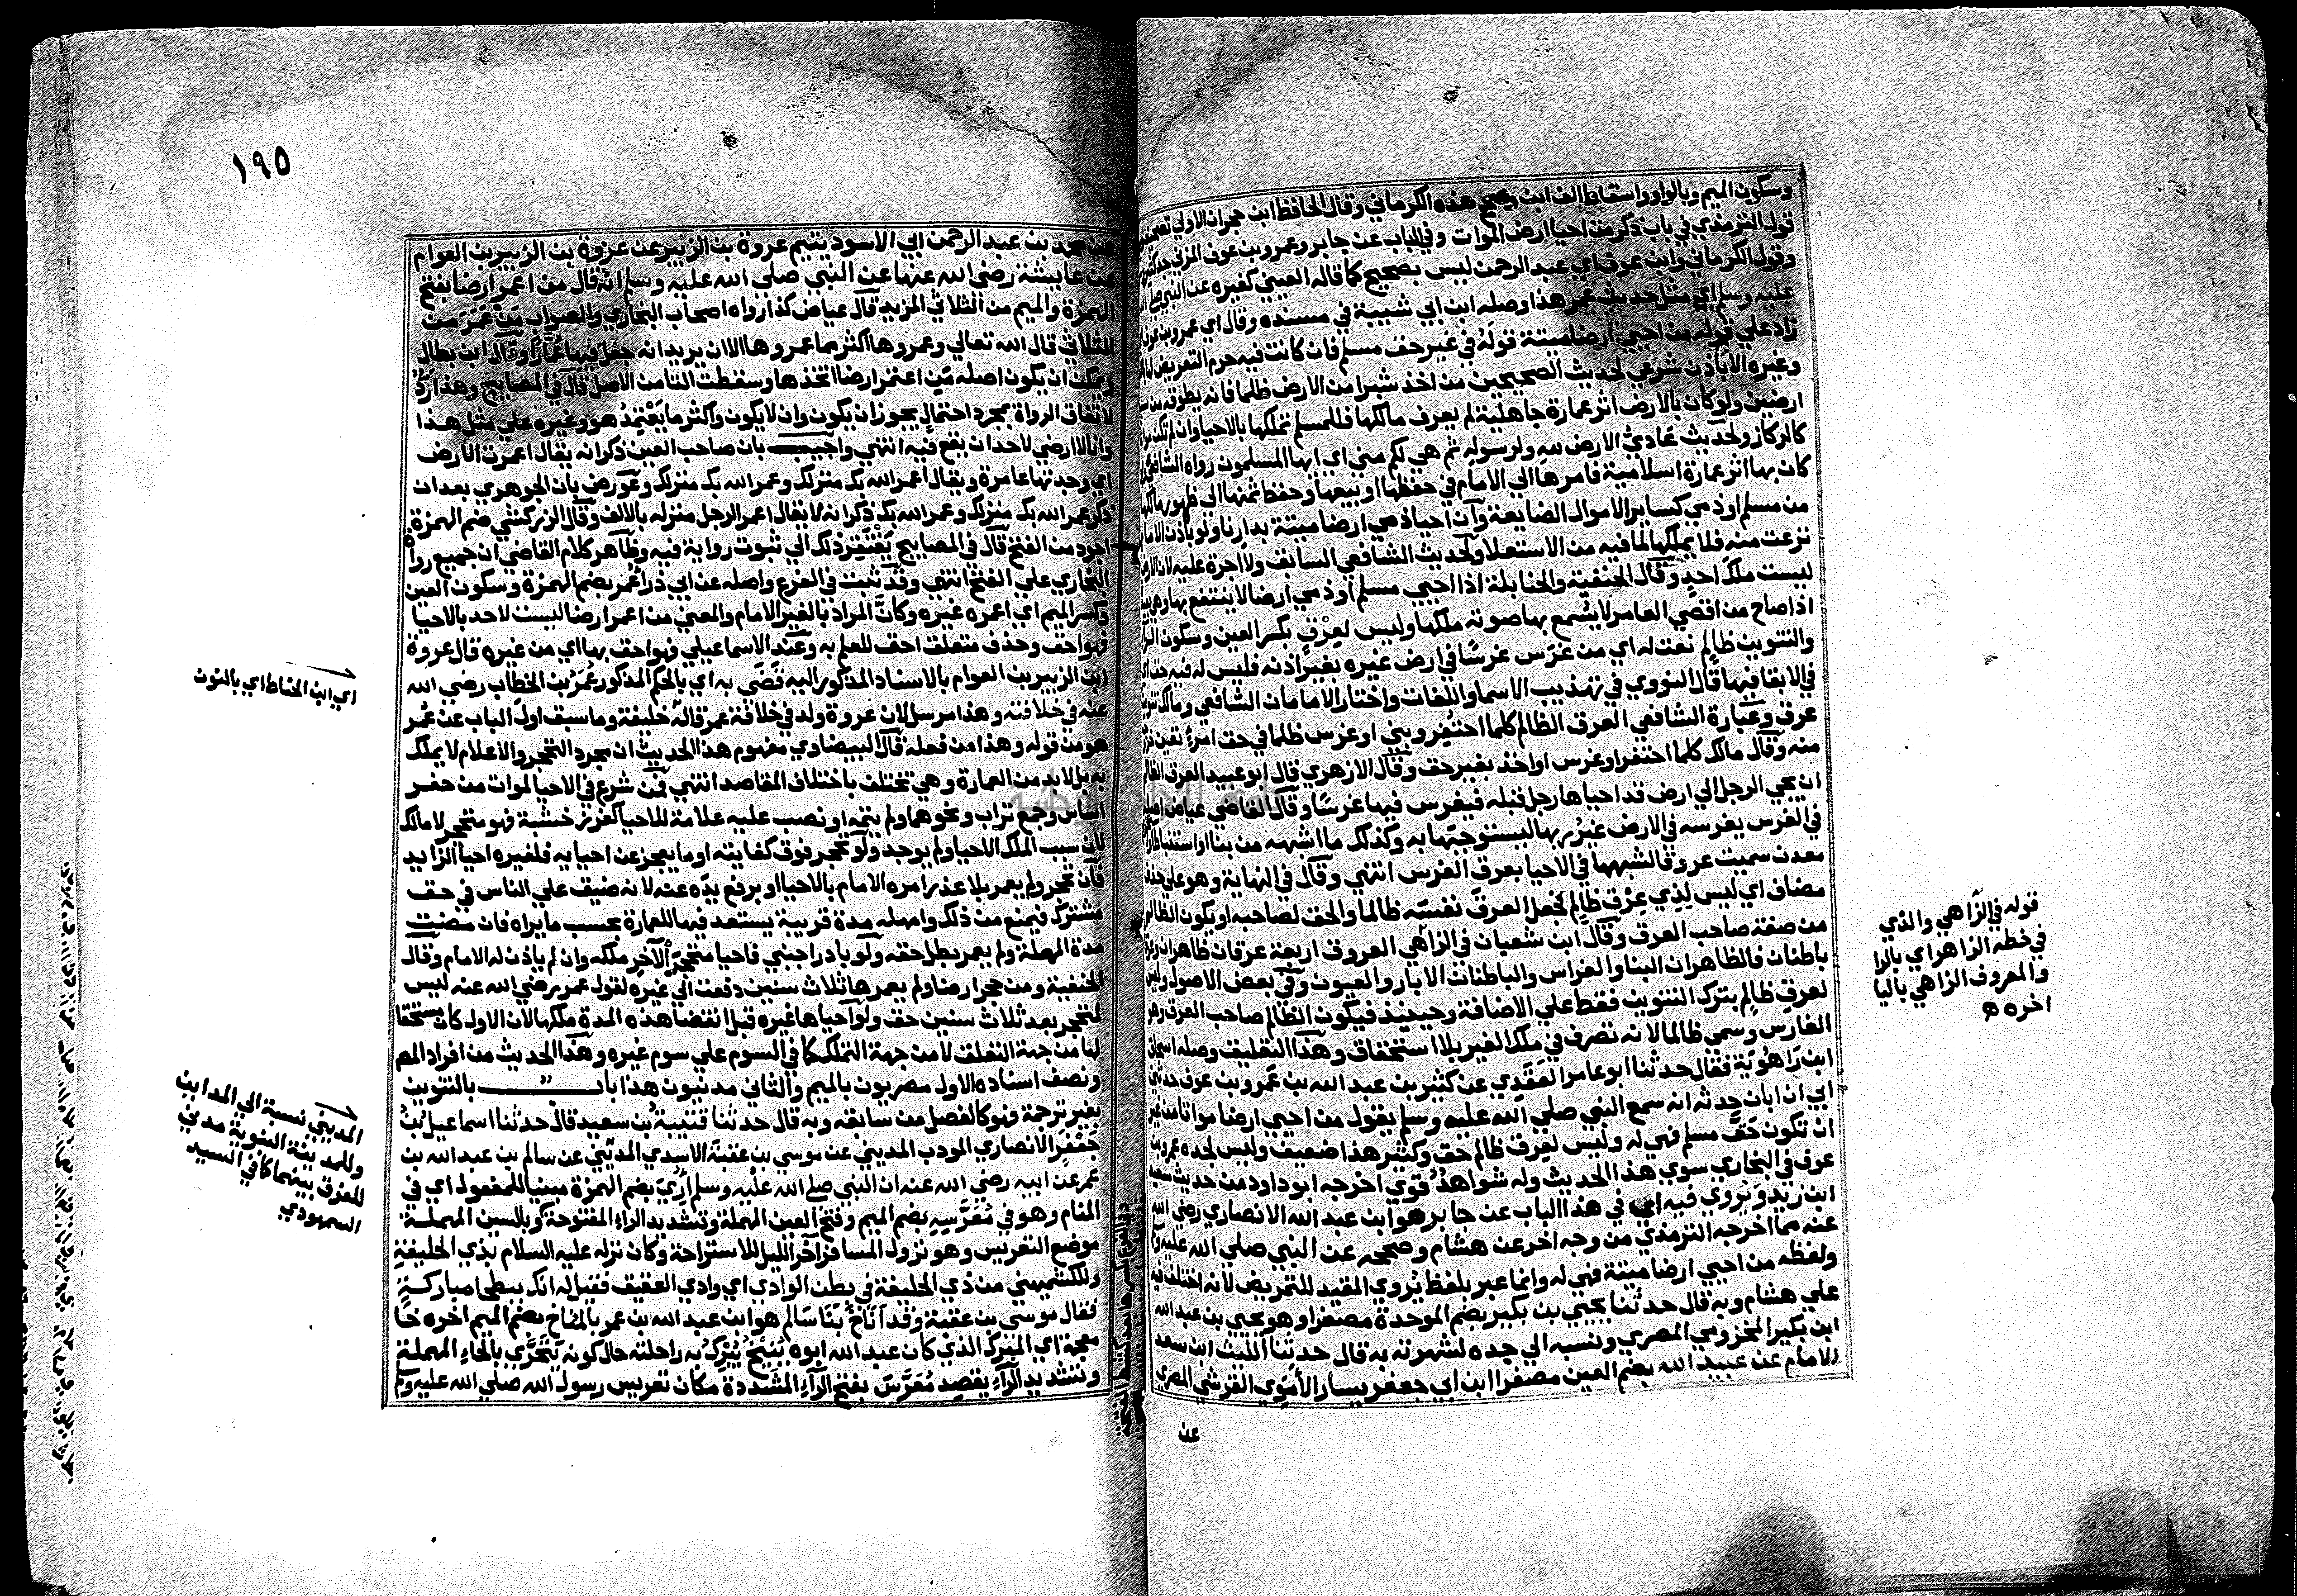 وسكون الميم وبالواو واسقاط الف ابن وصحح هذه الكرماني وقال الحافظ ابن حجر ان الاولي تصحيف
قول الترمذي في باب ذكر من احيا ارض الموات وفي الباب عن جابر وعمرو بن عوف المزني جد كثير
وقول الكرماني وابن عوف اي عبد الرحمن ليس بصحيح كما قاله العيني كغيره عن النبي صلي
عليه وسلم اي مثل حديث عمر هذا وصله ابن ابي شيبة في مسنده وقال اي عمرو بن عوف
زاد علي قوله من احيي ارضا ميتة قوله في غير حق مسلم فان كانت فيه حرم التعرض لها
وغيره الا باذن شرعي لحديث الصحيحين من اخذ شبرا من الارض ظلما فانه يطوقه من
ارضين ولو كان بالارض اثر عمارة جاهلية لم يعرف مالكها فللمسلم تملكها بالاحيا وان لم تكن
كالركاز ولحديث عادي الارض لله ولرسوله ثم هي لكم مني اي ايها المسلمون رواه الشافعي
كان بها اثر عمارة اسلامية فامرها الي الامام في حفظها او بيعها وحفظ ثمنها الي ظهور مالكها
من مسلم او ذمي كساير الاموال الضايعة وان احيا ذمي ارضا ميتة بدارنا ولو باذن الامام
نزعت منه فلا يملكها لما فيه من الاستعلا ولحديث الشافعي السابق ولا اجرة عليه لان الارض
ليست ملك احد وقال الحنفية والحنابلة اذا احيي مسلم او ذمي ارضا لا ينتفع بها وهي بعيدة
اذا صاح من اقصي العامر لا يسمع بها صوته ملكها وليس لعرق بكسر العين وسكون الرا
والتنوين ظالم نعت له اي من غرس غرسا في ارض غيره بغير اذنه فليس له فيه حق اي
في الابقا فيها قال النووي في تهذيب الاسما واللغات واختار الامامان الشافعي ومالك تنوين
عرق وعبارة الشافعي العرق الظالم كلما احتفر وبني او غرس ظلما في حق امرئ تعين خروجه
منه وقال مالك كلما احتفر او غرس او اخذ بغير حق وقال الازهري قال ابو عبيد العرق الظالم
ان يجي الرجل الي ارض قد احياها رجل قبله فيغرس فيها غرسا وقال القاضي عياض اصله
في الغرس يغرسه في الارض غير ربها ليستوجبها به وكذلك ما اشبهه من بنا او استنباط او
معدن سميت عروقا لشبهها في الاحيا بعرق الغرس انتهي وقال في النهاية وهو علي حذف
مضاف اي ليس لذي عرق ظالم فجعل العرق نفسه ظالما والحق لصاحبه او يكون الظالم
من صفة صاحب العرق وقال ابن شعبان في الزاهي العروق اربعة عرقان ظاهران وعرقان
باطنان فالظاهران البنا والغراس والباطنان الابار والعيون وفي بعض الاصول وليس
لعرق ظالم بترك التنوين فقط علي الاضافة وحينيذ فيكون الظالم صاحب العرق وهو
الغارس وسمي ظالما لانه تصرف في ملك الغير بلا استحقاق وهذا التعليق وصله اسحاق
ابن راهوية فقال حدثنا ابو عامر العقدي عن كثير بن عبد الله بن عمرو بن عوف حدثني
ابي ان اباه حدثه انه سمع النبي صلي الله عليه وسلم يقول من احيي ارضا مواتا من غير
ان تكون حق مسلم فهي له وليس لعرق ظالم حق وكثير هذا ضعيف وليس لجده عمرو بن
عوف في البخاري سوي هذا الحديث وله شواهد قوي اخرجه ابو داود من حديث سعيد
ابن زيد ويروي فيه اي في هذا الباب عن جابر هو ابن عبد الله الانصاري رضي الله
عنه مما اخرجه الترمذي من وجه اخر عن هشام وصححه عن النبي صلي الله عليه وسلم
ولفظه من احيي ارضا ميتة فهي له وانما عبر بلفظ يروي المفيد للتمريض لانه اختلف فيه
علي هشام وبه قال حدثنا يحيي بن بكير بضم الموحدة مصغرا وهو يحيي بن عبد الله
ابن بكير المخزومي المصري ونسبه الي جده لشهرته به قال حدثنا الليث ابن سعد
الامام عن عبيد الله بضم العين مصغرا ابن ابي جعفر يسار الأموي القرشي المصري
عن
قوله في الزاهي والذي
في خطه الزاهر اي بالرا
والمعروف الزاهي باليا
اخره ه
١٩٥
عن محمد بن عبد الرحمن ابي الاسود يتيم عروة بن الزبير عن عروة بن الزبير بن العوام
عن عايشة رضي الله عنها عن النبي صلي الله عليه وسلم انه قال من اعمر ارضا بفتح
الهمزة والميم من الثلاثي المزيد قال عياض كذا رواه اصحاب البخاري والصواب من عمر من
الثلاثي قال الله تعالي وعمروها اكثر مما عمروها الا ان يريد انه جعل فيها عمارا وقال ابن بطال
ويمكن ان يكون اصله من اعتمر ارضا اتخذها وسقطت التا من الاصل قال في المصابيح وهذا رد
لاتفاق الرواة بمجرد احتمال يجوز ان يكون وان لا يكون واكثر ما يعتمد هو وغيره علي مثل هذا
وانا لا ارضي لاحد ان يقع فيه انتهي واجيب بان صاحب العين ذكر انه يقال اعمرت الارض
اي وجدتها عامرة ويقال أعمر الله بك منزلك وعمر الله بك منزلك وعورض بان الجوهري بعد ان
ذكر عمر الله بك منزلك وعمر الله بك ذكر انه لا يقال اعمر الرجل منزله بالالف وقال الزركشي ضم الهمزة
اجود من الفتح قال في المصابيح يفتقر ذلك الي ثبوت رواية فيه وظاهر كلام القاضي ان جميع رواة
البخاري علي الفتح انتهي وقد ثبت في الفرع واصله عن ابي ذر اعمر بضم الهمزة وسكون العين
وكسر الميم اي اعمره غيره وكان المراد بالغير الامام والمعني من اعمر ارضا ليست لاحد بالاحيا
فهو احق وحذف متعلق احق للعلم به وعند الاسماعيلي فهو احق بها اي من غيره قال عروة
ابن الزبير بن العوام بالاسناد المذكور اليه قضي به اي بالحكم المذكور عمر بن الخطاب رضي الله
عنه في خلافته وهذا مرسل لان عروة ولد في خلافة عمر قاله خليفة وما سبق اول الباب عن عمر
هو من قوله وهذا من فعله قال البيضاوي مفهوم هذا الحديث ان مجرد التحجر والاعلام لا يملك
به بل لا بد من العمارة وهي تختلف باختلاف المقاصد انتهي فمن شرع في الاحيا لموات من حفر
اساس وجمع تراب ونحوهما ولم يتمه او نصب عليه علامة للاحيا كغرز خشبة فهو متحجر لا مالك
لان سبب الملك الاحيا ولم يوجد ولو تحجر فوق كفايته او ما يعجز عن احيايه فلغيره احيا الزايد
فان تحجر ولم يعمر بلا عذر امره الامام بالاحيا او برفع يده عنه لانه ضيق علي الناس في حق
مشترك فيمنع من ذلك وامهله مدة قريبة يستعد فيها للعمارة بحسب ما يراه فان مضت
مدة المهلة ولم يعمر بطل حقه ولو بادر اجنبي فاحيا متحجر الآخر ملكه وان لم ياذن له الامام وقال
الحنفية ومن حجر ارضا ولم يعمرها ثلاث سنين دفعت الي غيره لقول عمر رضي الله عنه ليس
لمتحجر بعد ثلاث سنين حق ولو احياها غيره قبل انقضا هذه المدة ملكها لان الاول كان مستحقا
لها من جهة التعلق لا من جهة التملك كما في السوم علي سوم غيره وهذا الحديث من افراد المص
ونصف اسناده الاول مصريون بالميم والثاني مدنيون هذا باب بالتنوين
بغير ترجمة فهو كالفصل من سابقه وبه قال حدثنا قتيبة بن سعيد قال حدثنا اسماعيل بن
جعفر الانصاري المودب المديني عن موسي بن عقبة الاسدي المديني عن سالم بن عبد الله بن
عمر عن ابيه رضي الله عنه ان النبي صلي الله عليه وسلم أري بضم الهمزة مبنيا للمفعول اي في
المنام وهو في معرسه بضم الميم وفتح العين المهملة وتشديد الراء المفتوحة وبالسين المهملة
موضع التعريس وهو نزول المسافر آخر الليل للاستراحة وكان نزله عليه السلام بذي الحليفة
وللكشميهني من ذي الحليفة في بطن الوادي اي وادي العقيق فقيل له انك ببطحا مباركة
فقال موسي بن عقبة وقد اناخ بنا سالم هو ابن عبد الله بن عمر بالمناخ بضم الميم اخره خا
معجمة اي المبرك الذي كان عبد الله ابوه ينيخ يبرك به راحلته حال كونه يتحري بالحاء المهملة
وتشديد الراء يقصد معرس بفتح الراء المشددة مكان تعريس رسول الله صلي الله عليه وسلم
اي ابن الخياط اي بالنون
المديني نسبة الي المداين
وللمدينة النبوية مدني
للفرق بينهما كما في السيد
السمهودي